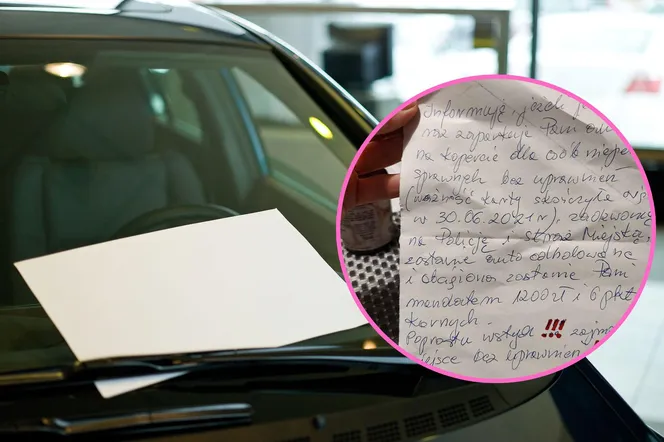 Informuję, jeżeli
raz zaparkuje Pani
na kopercie dla osób niepe
sprawnych bez uprawnień
(ważność karty skończyła się
w 30.06.2021r),
na Policję i Straż Miejską,
zostanie auto odholowane
i obciążona zostanie Pani
mandatem 1200zł i 6 pkt
karnych.
Poprostu wstyd !!!
miejsce bez uprawnień